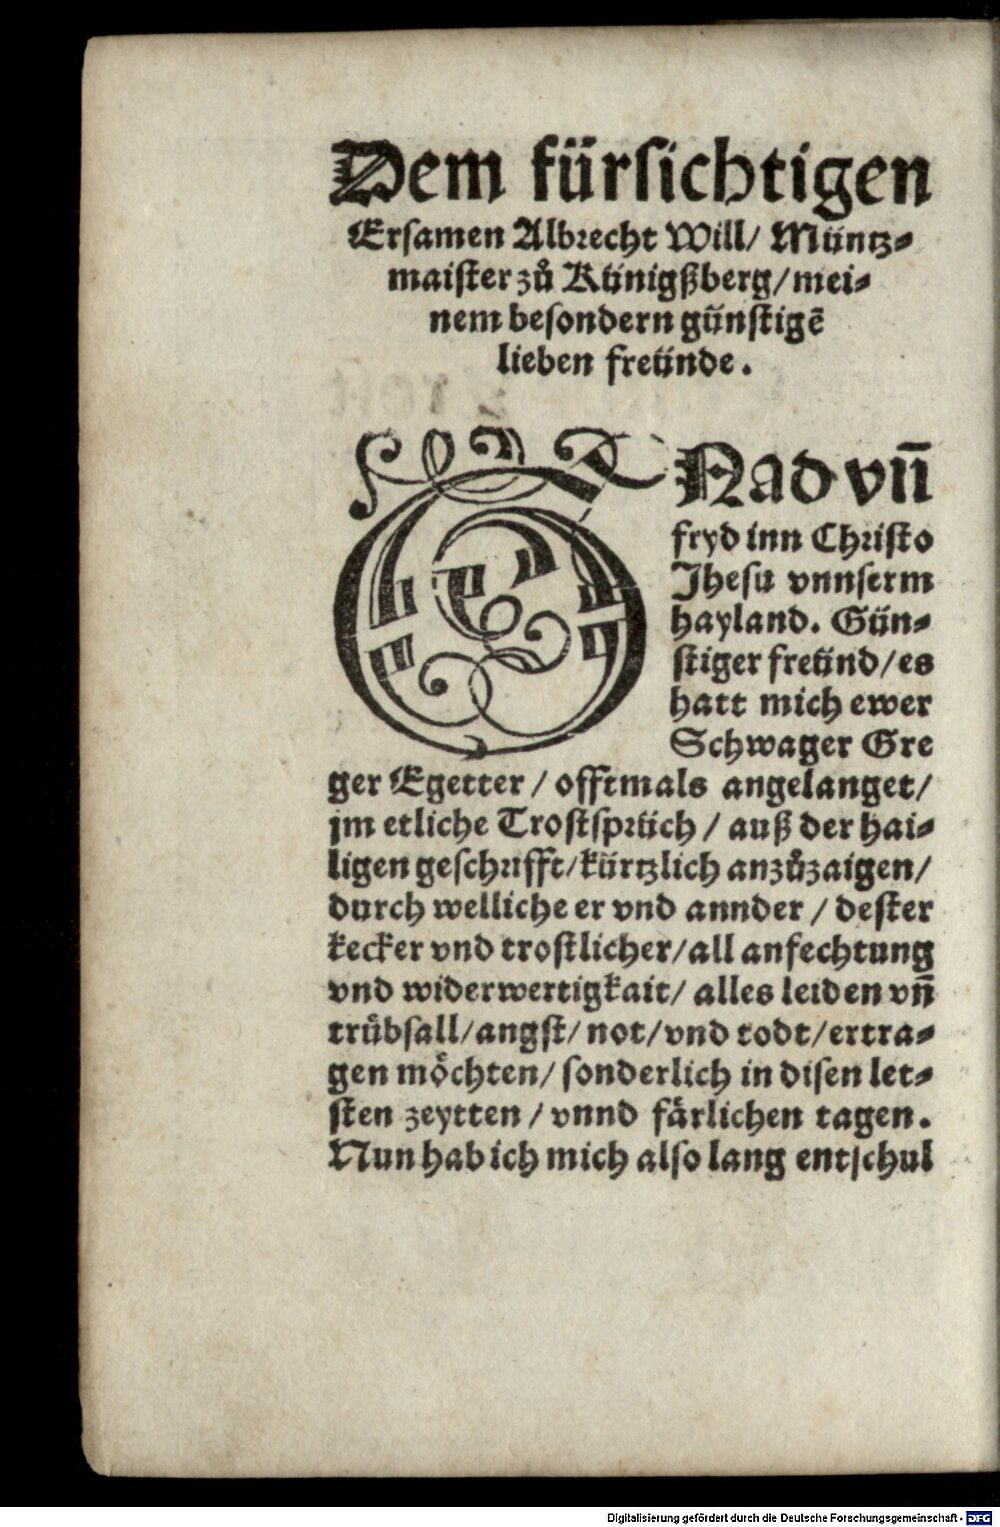 Dem fürsichtigen
Ersamen Albrecht Will/ Müntz⸗
maister zů Künigßberg/ mei⸗
nem besondern günstigē
lieben freünde.
GNad vñ
fryd inn Christo
Jhesu vnnserm
hayland. Gün⸗
stiger freünd/ es
hatt mich ewer
Schwager Gre
ger Egetter / offtmals angelanget/
jm etliche Trostsprüch / auß der hai⸗
ligen geschrifft/ kürtzlich anzůzaigen/
durch welliche er vnd annder / dester
kecker vnd trostlicher/ all anfechtung
vnd widerwertigkait/ alles leiden vñ
trübsall/ angst/ not/ vnd todt/ ertra⸗
gen möchten/ sonderlich in disen let⸗
sten zeytten / vnnd färlichen tagen.
Nun hab ich mich also lang entschul
Digitalisierung gefördert durch die Deutsche Forschungsgemeinschaft - DFG